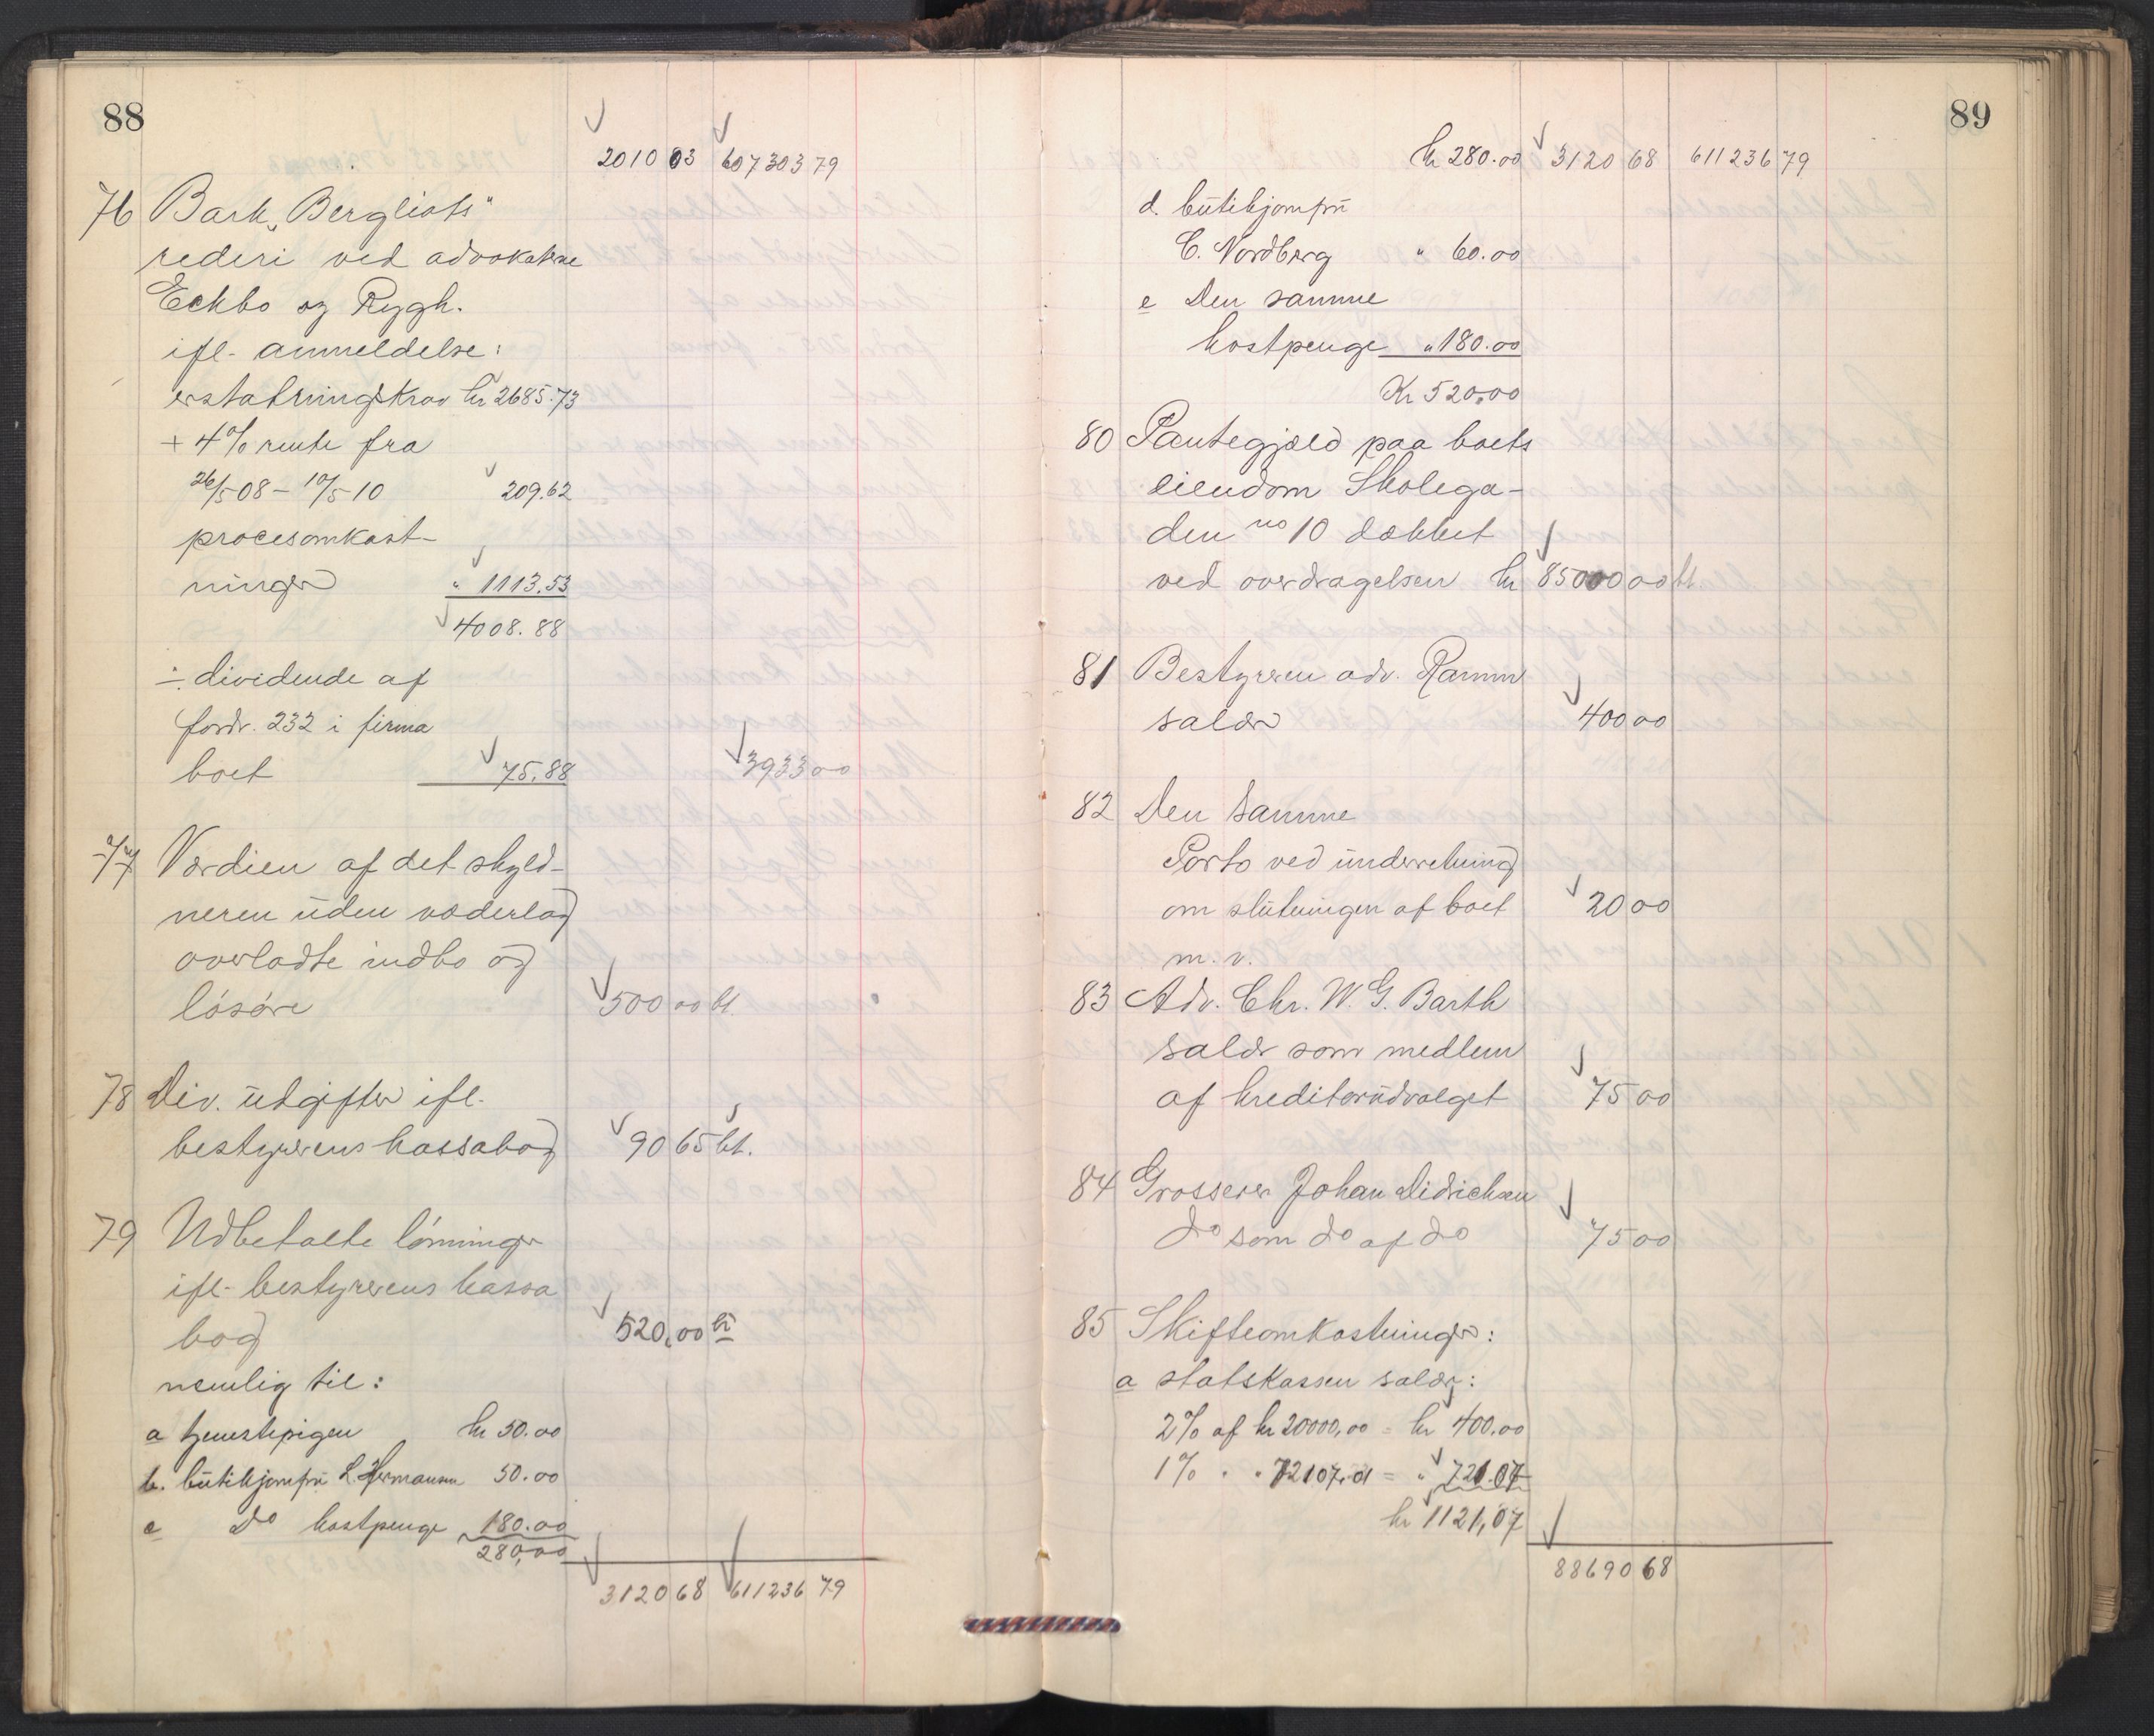 88
2010 03 607303 79
76 Bark „Bergliots"
rederi ved advokaterne
Eckbo og Rygh.
ifl. anmeldelse:
erstatningskrav kr 2685.73
+ 4% rente fra
26/5 08 – 10/5 10 209.62
procesomkost-
ninger " 1113.53
4008.88
÷ dividende af
fordr. 232 i firma
boet 75.88 3933 00
77 Værdien af det skyld-
neren uden vederlag
overladte indbo og
løsøre 500 00 bt.
78 Div. udgifter ifl.
bestyrerens kassabog 90 65 bt.
79 Udbetalte lønninger
ifl. bestyrerens kassa
bog 520,00 bt
nemlig til:
a tjenestepigen kr 50.00
b. butikjomfru L. Hermansen 50.00
c Do kostpenge 180.00
280,00
3120 68 611236 79
89
kr 280.00 3120 68 611236 79
d. butikjomfru
C. Nordberg " 60.00
e Den samme
kostpenge " 180.00
Kr 520,00
80 Pantegjæld paa boets
eiendom Skolega-
den no 10 dækket
ved overdragelsen kr 85000 00 bt.
81 Bestyreren adv. Ramm
salær 400 00
82 Den samme
Porto ved underretning
om slutningen af boet 20 00
m. v.
83 Adv. Chr. W. G. Barth
salær som medlem
af kreditorudvalget 75 00
84 Grosserer Johan Didrichsen
do som do af do 75 00
85 Skifteomkostninger:
a statskassen salær:
2% af kr 20000,00 = kr 400.00
1% " " 72107,01 = " 721.07
kr 1121,07
88690 68